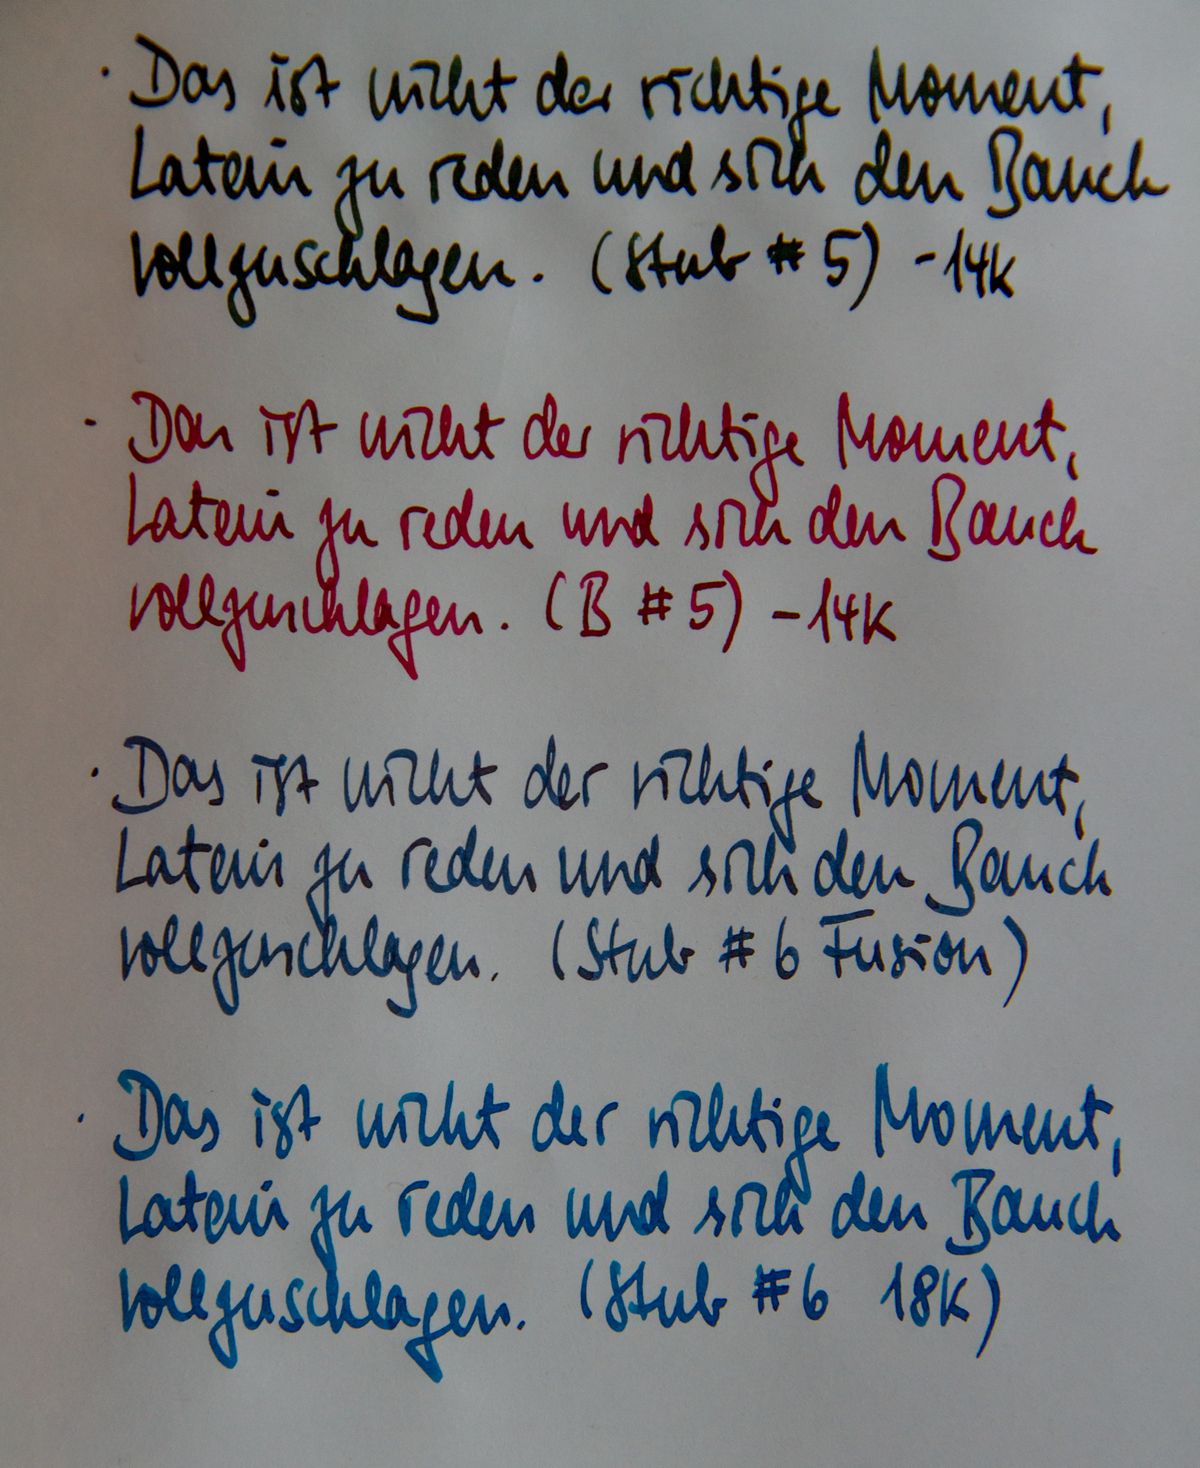 · Das ist nicht der richtige Moment,
Latein zu reden und sich den Bauch
vollzuschlagen. (Stub # 5) - 14K
· Das ist nicht der richtige Moment,
Latein zu reden und sich den Bauch
vollzuschlagen. (B # 5) - 14K
· Das ist nicht der richtige Moment,
Latein zu reden und sich den Bauch
vollzuschlagen. (Stub # 6 Fusion)
· Das ist nicht der richtige Moment,
Latein zu reden und sich den Bauch
vollzuschlagen. (Stub #6 18K)